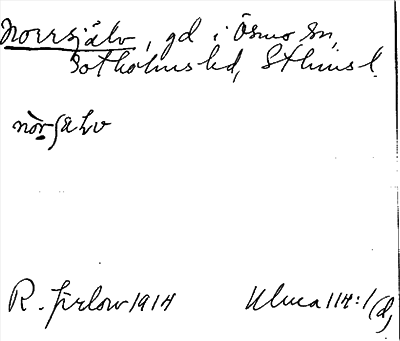 Norrsjälv, gd i Ösmo sn,
Sotholms hd, Sthlms l.
R. Jirlow 1914
Uluea 114:1 (d)